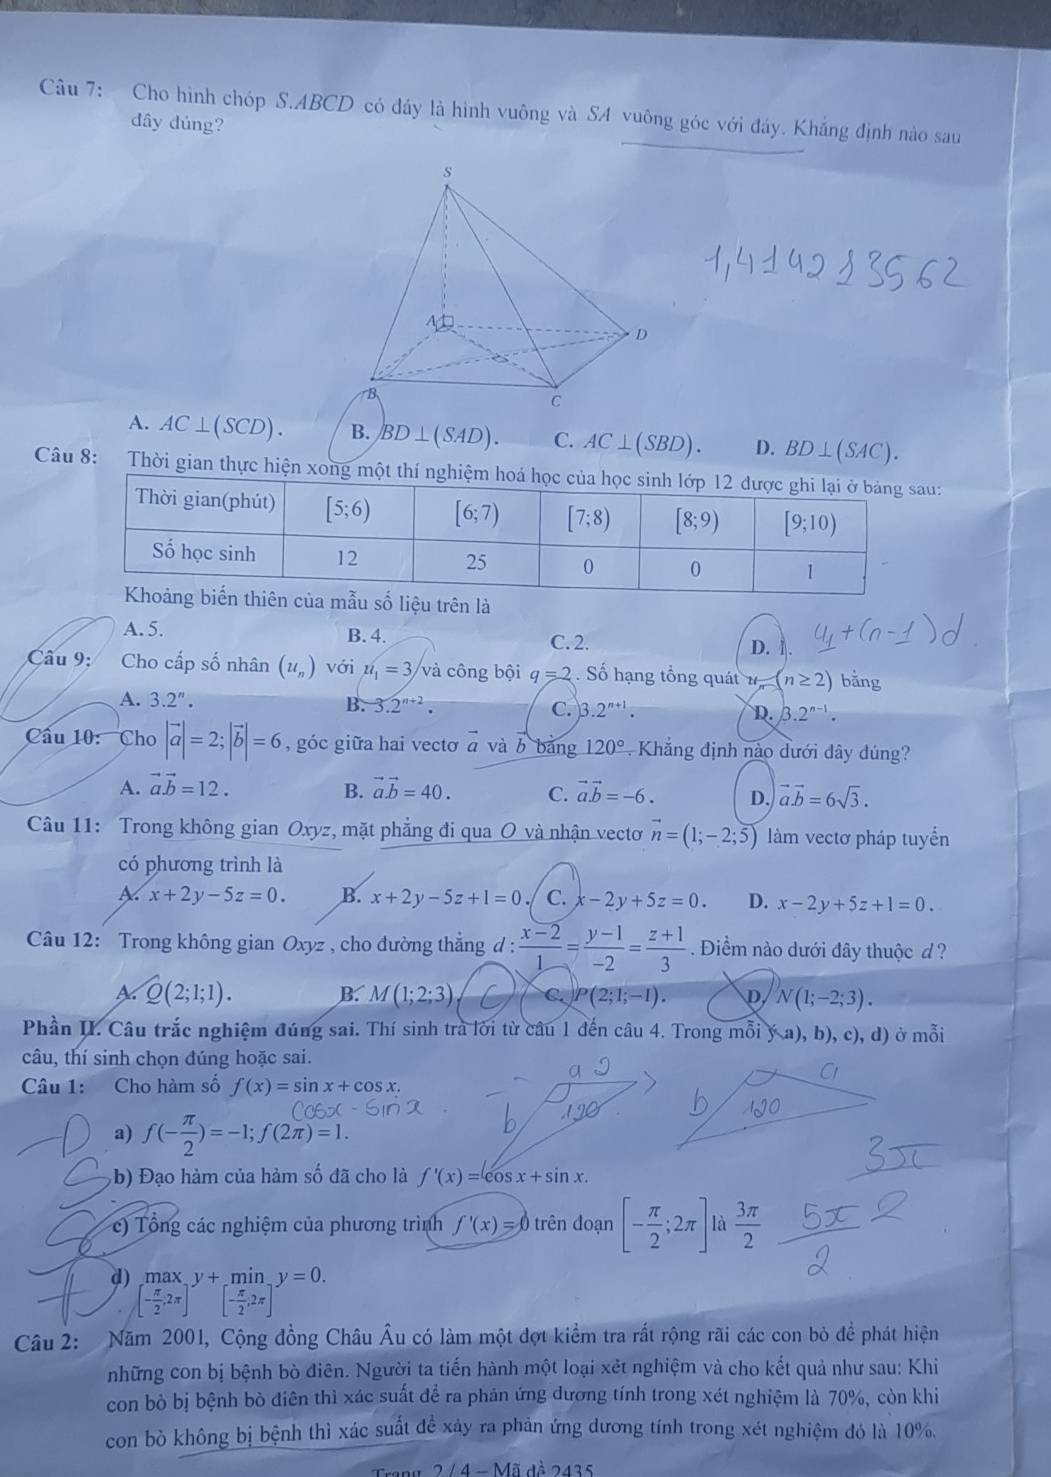 Câu 7: Cho hình chóp S.ABCD có đáy là hình vuông và SA vuông góc với đáy. Khẳng định nào sau
đây đúng?
S
1,414213562
A
D
B
C
A. AC ⊥ (SCD). B. BD ⊥ (SAD). C. AC ⊥ (SBD). D. BD ⊥ (SAC).
Câu 8: Thời gian thực hiện xong một thí nghiệm hoá học của học sinh lớp 12 được ghi lại ở bảng sau:
Thời gian(phút) [5;6) [6;7) [7;8) [8;9) [9;10)
Số học sinh 12 25 0 0 1
Khoảng biến thiên của mẫu số liệu trên là
A. 5. B. 4. C. 2. D. 1. u₁+(n-1)d
Câu 9: Cho cấp số nhân (uₙ) với u₁ = 3 và công bội q = 2. Số hạng tổng quát uₙ (n ≥ 2) bằng
A. 3.2ⁿ. B. 3.2ⁿ⁺². C. 3.2ⁿ⁺¹. D. 3.2ⁿ⁻¹.
Câu 10: Cho |a⃗| = 2; |b⃗| = 6, góc giữa hai vectơ a⃗ và b⃗ bằng 120°. Khẳng định nào dưới đây đúng?
A. a⃗.b⃗ = 12. B. a⃗.b⃗ = 40. C. a⃗.b⃗ = -6. D. a⃗.b⃗ = 6√3.
Câu 11: Trong không gian Oxyz, mặt phẳng đi qua O và nhận vectơ n⃗ = (1;-2;5) làm vectơ pháp tuyến
có phương trình là
A. x+2y-5z=0. B. x+2y-5z+1=0. C. x-2y+5z=0. D. x-2y+5z+1=0.
Câu 12: Trong không gian Oxyz, cho đường thẳng d: (x-2)/1 = (y-1)/-2 = (z+1)/3. Điểm nào dưới đây thuộc d?
A. Q(2;1;1). B. M(1;2;3). C C. P(2;1;-1). D. N(1;-2;3).
Phần II. Câu trắc nghiệm đúng sai. Thí sinh trả lời từ câu 1 đến câu 4. Trong mỗi ý a), b), c), d) ở mỗi
câu, thí sinh chọn đúng hoặc sai.
Câu 1: Cho hàm số f(x) = sin x + cos x.
cosx - sinx
a b 120
a b 120
Đ a) f(-π/2) = -1; f(2π) = 1.
3π
S b) Đạo hàm của hàm số đã cho là f'(x) = cos x + sin x.
c) Tổng các nghiệm của phương trình f'(x) = 0 trên đoạn [-π/2; 2π] là 3π/2
5π/2
d) max y + min y = 0.
[-π/2;2π] [-π/2;2π]
Câu 2: Năm 2001, Cộng đồng Châu Âu có làm một đợt kiểm tra rất rộng rãi các con bò để phát hiện
những con bị bệnh bò điên. Người ta tiến hành một loại xét nghiệm và cho kết quả như sau: Khi
con bò bị bệnh bò điên thì xác suất để ra phản ứng dương tính trong xét nghiệm là 70%, còn khi
con bò không bị bệnh thì xác suất để xảy ra phản ứng dương tính trong xét nghiệm đó là 10%.
Trang 2/4 – Mã đề 2435